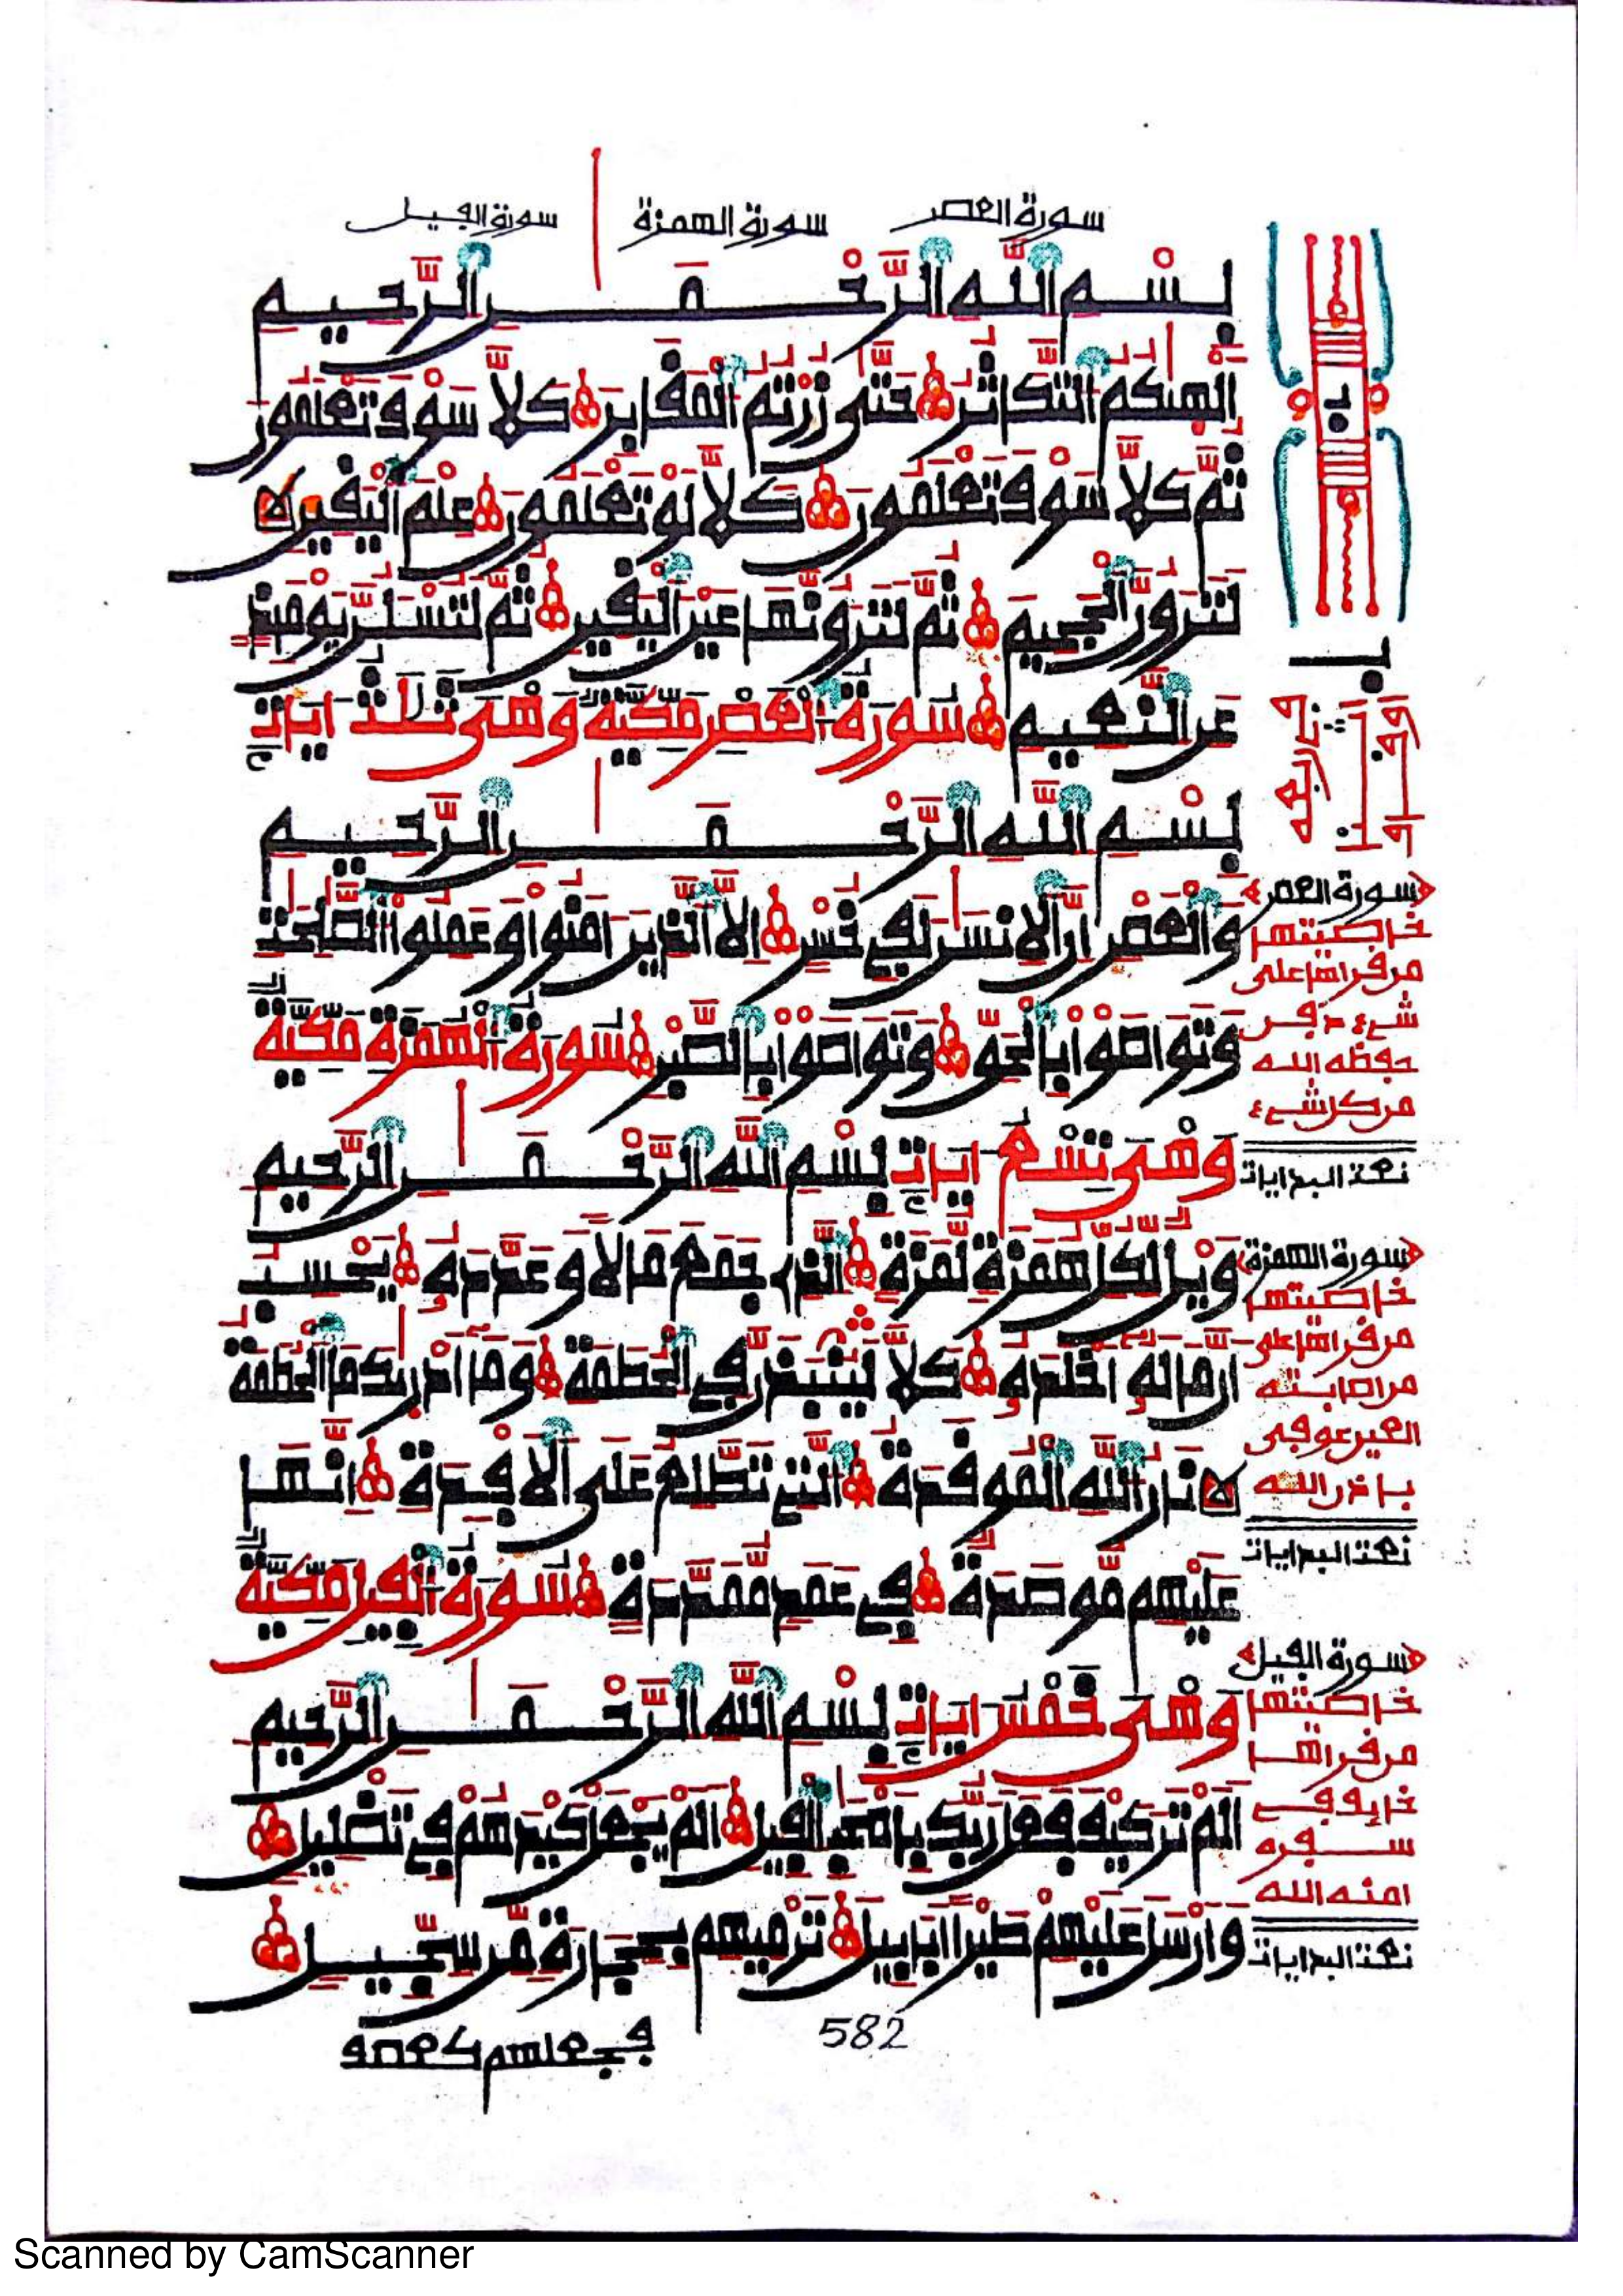 سورة العصر
سورة الهمزة
سورة الفيل
بِسْمِ اللَّهِ الرَّحْمَٰنِ الرَّحِيمِ
ألهيكم التكاثر حتى زرتم المقابر كلا سوف تعلمون
ثم كلا سوف تعلمون كلا لو تعلمون علم اليقين لا
لترون الجحيم ثم لترونها عين اليقين ثم لتسلن يومئذ
عن النعيم سورة العصر مكية وهي ثلث ايات
بسم الله الرحمن الرحيم
والعصر ان الانسن لفي خسر الا الذين امنوا وعملوا الصلحت
وتواصوا بالحق وتواصوا بالصبر سورة الهمزة مكية
وهي تسع ايات بسم الله الرحمن الرحيم
ويل لكل همزة لمزة الذى جمع مالا وعدده يحسب
ان ماله اخلده كلا لينبذن في الحطمة وما ادريك ما الحطمة
لا نار الله الموقدة التي تطلع على الافدة انها
عليهم موصدة في عمد ممددة سورة الفيل مكية
وهي خمس ايات بسم الله الرحمن الرحيم
الم تر كيف فعل ربك باصحب الفيل الم يجعل كيدهم في تضليل
وارسل عليهم طيرا ابابيل ترميهم بحجارة من سجيل
فجعلهم كعصف
582
سورة العصر
خاصيتها
من قراها على
شيء دفن
حفظه الله
من كل شيء
نعت البدايات
سورة الهمزة
خاصيتها
من قراها على
من اصابته
العين عوفى
باذن الله
نعت البدايات
سورة الفيل
خاصيتها
من قراها
خايف في
سفره
امنه الله
نعت البدايات
Scanned by CamScanner